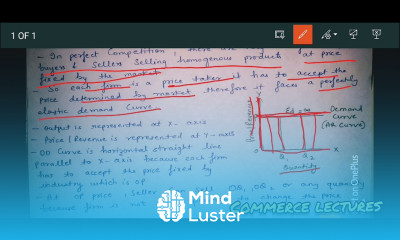 1 OF 1
- In perfect Competition, there are
buyers & Sellers Selling homogenous products at price
fixed by the market
- So each firm is a price taker it has to accept the
price determined by market therefore it faces a perfectly
elastic demand Curve.
- Output is represented at x-axis
- Price / Revenue is represented at Y-axis
- DD Curve is horizontal straight line
parallel to x-axis because each firm
has to accept the price fixed by
industry which is OP
- At OP price, seller OQ1, OQ2 or any quantity
because firm is not to change the price
Ed = ∞
Demand
Curve
(AR Curve)
O Q1 Q2 X
Quantity
Mind
Luster
COMMERCE LECTURES